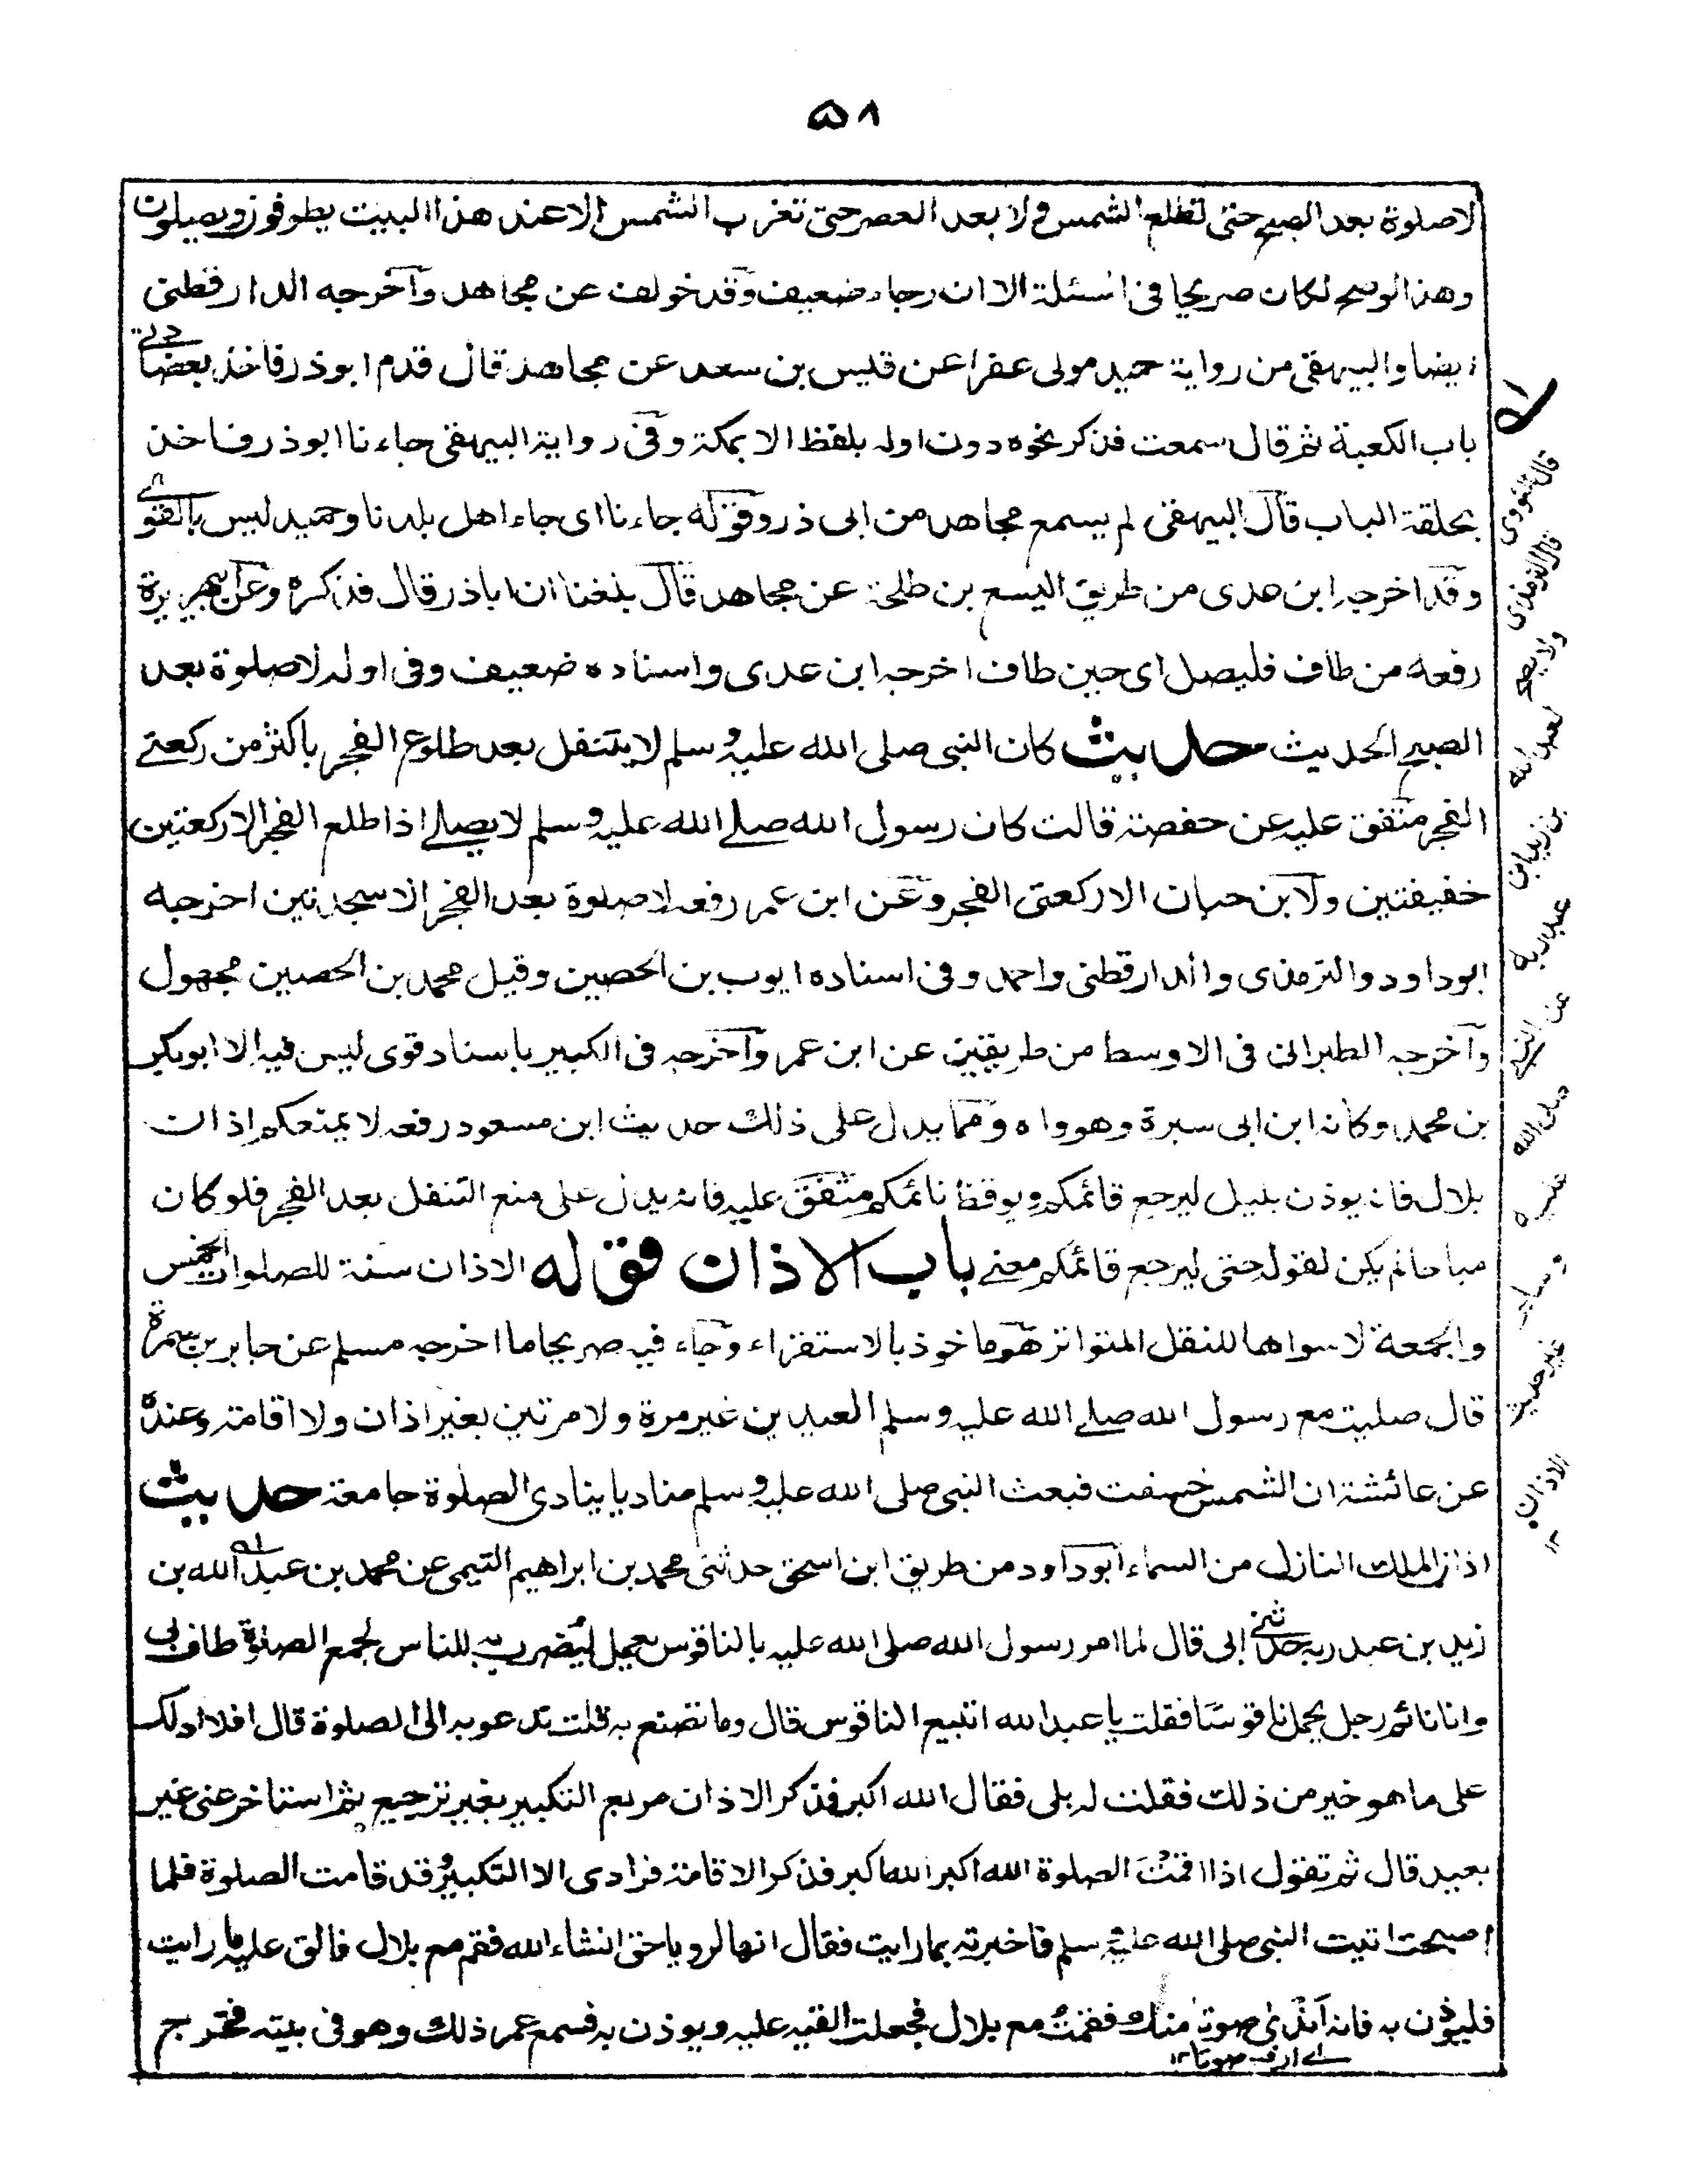 ۵۸
لاصلوة بعد الصبح حتى تطلع الشمس ولا بعد العصر حتى تغرب الشمس الا عند هذا البيت يطوفون ويصلون
وهذا لوصح لكان صريحا فى المسئلة الا ان رجاء ضعيف وقد خولف عن مجاهد وآخرجه الدارقطنى
ايضا والبيهقى من رواية حميد مولى عفرا عن قيس بن سعد عن مجاهد قال قدم ابوذر فاخذ بعضادتى
باب الكعبة ثم قال سمعت فذكر نحوه دون اوله بلفظ الا بمكة وفى رواية البيهقى جاءنا ابوذر فاخذ
بحلقة الباب قال البيهقى لم يسمع مجاهد من ابى ذر وقوله جاءنا اى جاء اهل بلدنا وحميد ليس بالقوى
وقد اخرجه ابن عدى من طريق اليسع بن طلحة عن مجاهد قال بلغنا ان اباذر قال فذكره وعن ابيهريرة
رفعه من طاف فليصل اى حين طاف اخرجه ابن عدى واسناده ضعيف وفى اوله لاصلوة بعد
الصبح الحديث حديث كان النبى صلى الله عليه وسلم لا يتنفل بعد طلوع الفجر باكثر من ركعتے
الفجر متفق عليه عن حفصة قالت كان رسول الله صلے الله عليه وسلم لا يصلے اذا طلع الفجر الا ركعتين
خفيفتين ولابن حبان الا ركعتى الفجر وعن ابن عمر رفعه لا صلوة بعد الفجر الا سجدتين اخرجه
ابوداود والترمذى والدارقطنى واحمد وفى اسناده ايوب بن الحصين وقيل محمد بن الحصين مجهول
وآخرجه الطبرانى فى الاوسط من طريقين عن ابن عمر وآخرجه فى الكبير باسناد قوى ليس فيه الا ابوبكر
بن محمد وكانه ابن ابى سبرة وهو واه ومما يدل على ذلك حديث ابن مسعود رفعه لا يمنعكم اذان
بلال فانه يوذن بليل ليرجع قائمكم ويوقظ نائمكم متفق عليه فانه يدل على منع التنفل بعد الفجر فلو كان
مباحا لم يكن لقوله حتى ليرجع قائمكم معنے باب الاذان قوله الاذان سنة للصلوات الخمس
والجمعة لا سواها للنقل المتواتر هو ماخوذ بالاستقراء وجاء فيه صريحا ما اخرجه مسلم عن جابر بن سمرة
قال صليت مع رسول الله صلے الله عليه وسلم العيدين غير مرة ولا مرتين بغير اذان ولا اقامة وعنده
عن عائشة ان الشمس خسفت فبعث النبى صلى الله عليه وسلم مناديا ينادى الصلوة جامعة حديث
اذان الملك النازل من السماء ابوداود من طريق ابن اسحق حدثنى محمد بن ابراهيم التيمى عن محمد بن عبد الله بن
زيد بن عبد ربه حدثنے ابى قال لما امر رسول الله صلى الله عليه بالناقوس يعمل ليضرب به للناس لجمع الصلوة طاف بى
وانا نائم رجل يحمل ناقوسا فقلت يا عبد الله اتبيع الناقوس قال وما تصنع به قلت ندعو به الى الصلوة قال افلا ادلك
على ما هو خير من ذلك فقلت له بلى فقال الله اكبر فذكر الاذان مربع التكبير بغير ترجيع ثم استاخر عنى غير
بعيد قال ثم تقول اذا اقمت الصلوة الله اكبر الله اكبر فذكر الاقامة فرادى الا التكبير وقد قامت الصلوة فلما
اصبحت اتيت النبى صلى الله عليه وسلم فاخبرته بما رايت فقال انها لرويا حق انشاء الله فقم مع بلال فالق عليه ما رايت
فليوذن به فانه اندى صوتا منك فقمت مع بلال فجعلت القيه عليه ويوذن به فسمع عمر ذلك وهو فى بيته فخرج
اے ارفع صوتا ١٢
قال النووى
قال الترمذى
ولا يصح
لعبد الله
بن زيد ابن
عبد ربه
عن النبے
صلى الله
عليه
وسلم
غير حديث
الاذان
١٢